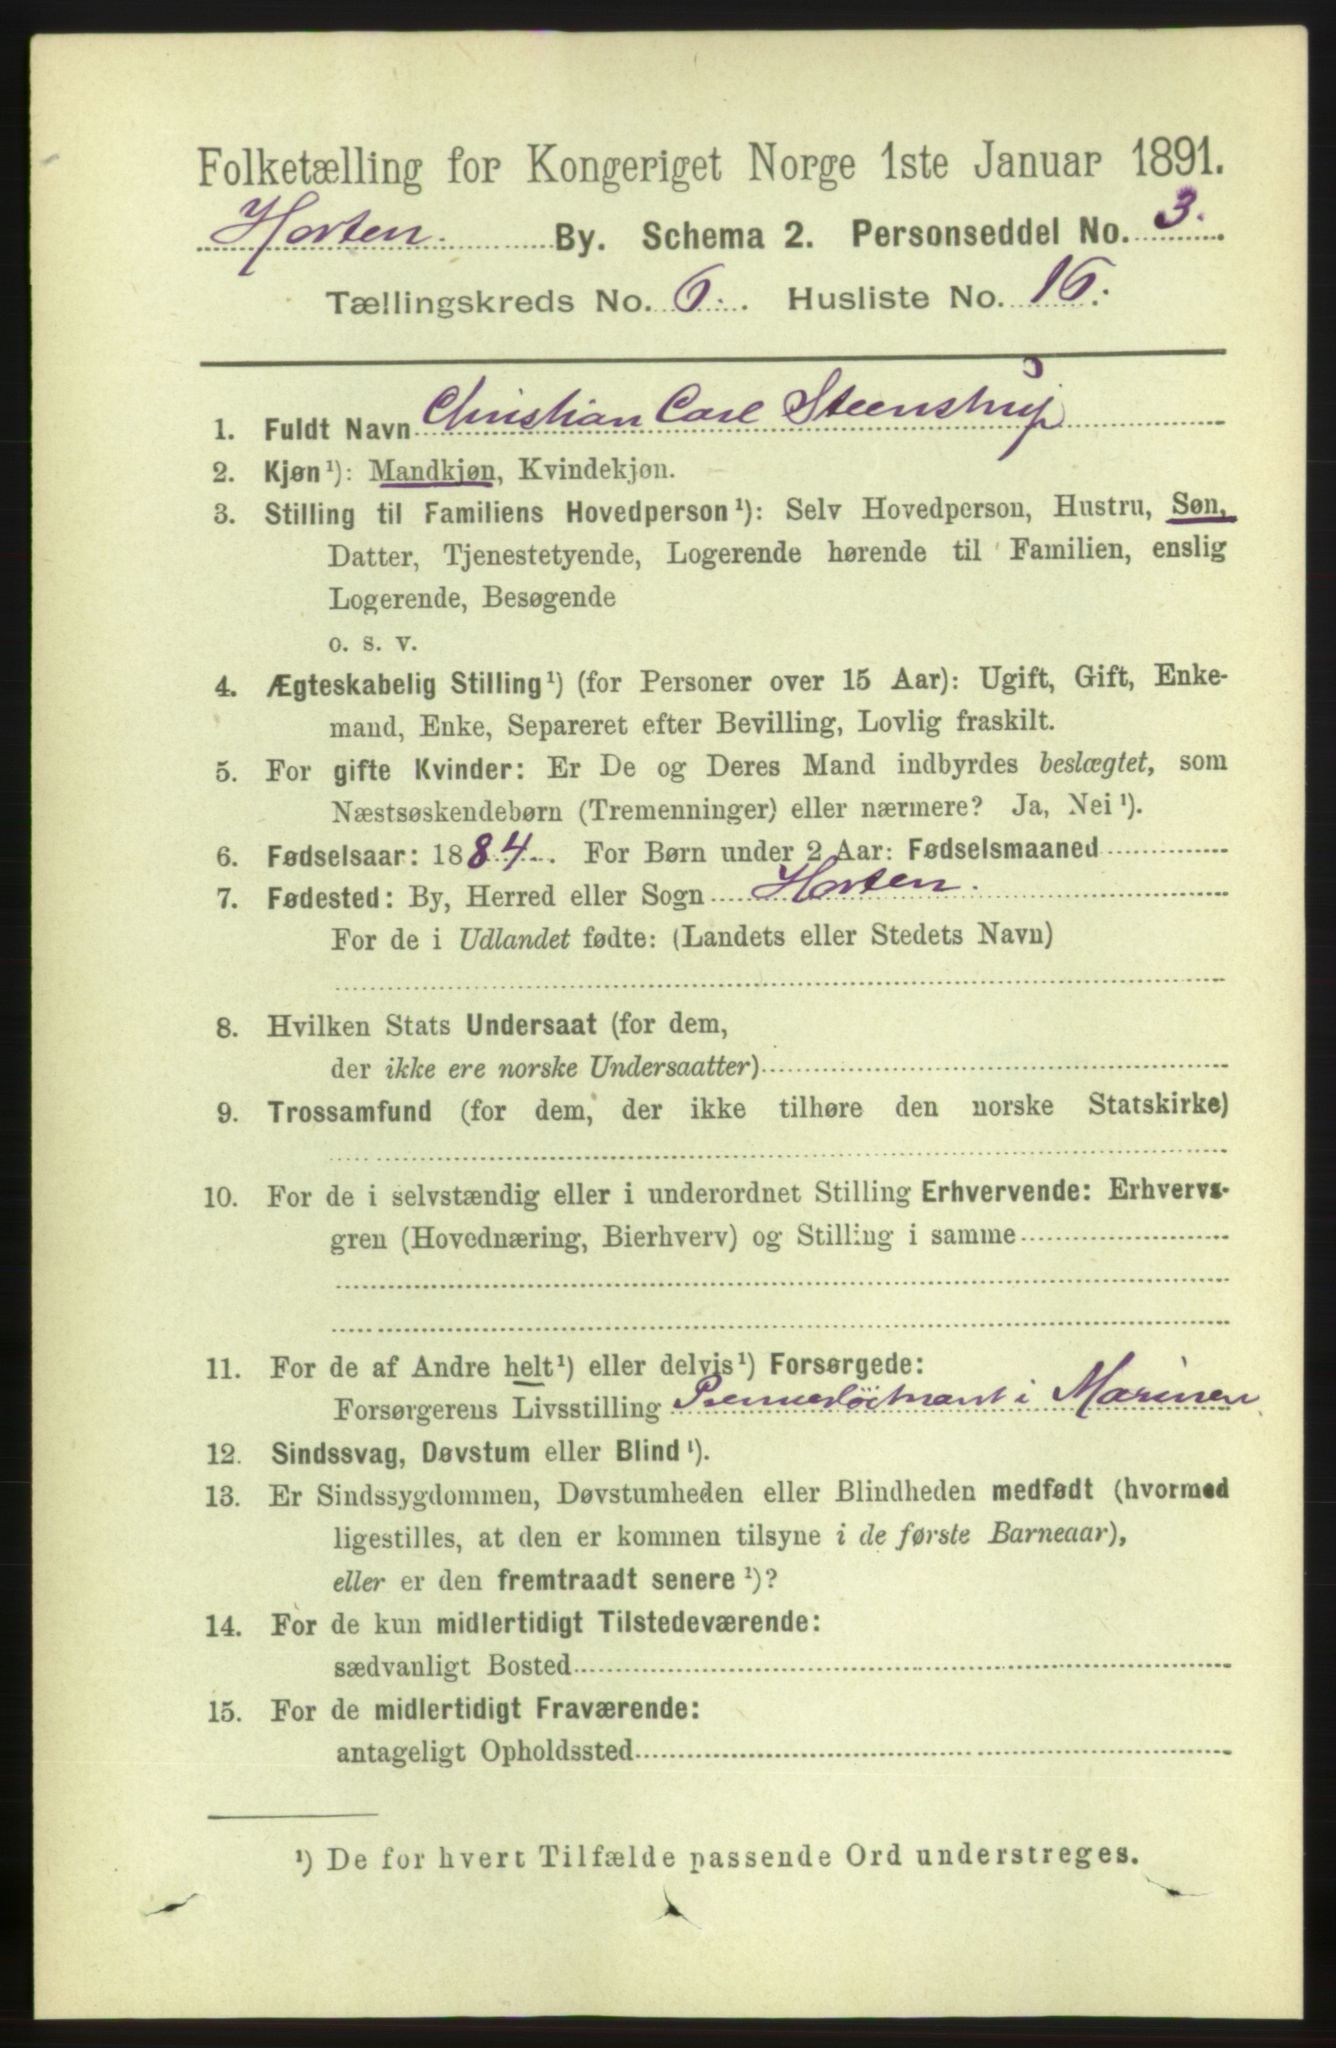 Folketælling for Kongeriget Norge 1ste Januar 1891.
Horten. By. Schema 2. Personseddel No. 3.
Tællingskreds No. 6. Husliste No. 16.
1. Fuldt Navn Christian Carl Steenstrup
2. Kjøn¹): Mandkjøn, Kvindekjøn.
3. Stilling til Familiens Hovedperson¹): Selv Hovedperson, Hustru, Søn,
Datter, Tjenestetyende, Logerende hørende til Familien, enslig
Logerende, Besøgende
o. s. v.
4. Ægteskabelig Stilling¹) (for Personer over 15 Aar): Ugift, Gift, Enke-
mand, Enke, Separeret efter Bevilling, Lovlig fraskilt.
5. For gifte Kvinder: Er De og Deres Mand indbyrdes beslægtet, som
Næstsøskendebørn (Tremenninger) eller nærmere? Ja, Nei¹).
6. Fødselsaar: 1884. For Børn under 2 Aar: Fødselsmaaned
7. Fødested: By, Herred eller Sogn Horten.
For de i Udlandet fødte: (Landets eller Stedets Navn)
8. Hvilken Stats Undersaat (for dem,
der ikke ere norske Undersaatter)
9. Trossamfund (for dem, der ikke tilhøre den norske Statskirke)
10. For de i selvstændig eller i underordnet Stilling Erhvervende: Erhvervs-
gren (Hovednæring, Bierhverv) og Stilling i samme
11. For de af Andre helt¹) eller delvis¹) Forsørgede:
Forsørgerens Livsstilling Premierløitnant i Marinen
12. Sindssvag, Døvstum eller Blind¹).
13. Er Sindssygdommen, Døvstumheden eller Blindheden medfødt (hvormed
ligestilles, at den er kommen tilsyne i de første Barneaar),
eller er den fremtraadt senere¹)?
14. For de kun midlertidigt Tilstedeværende:
sædvanligt Bosted
15. For de midlertidigt Fraværende:
antageligt Opholdssted
¹) De for hvert Tilfælde passende Ord understreges.